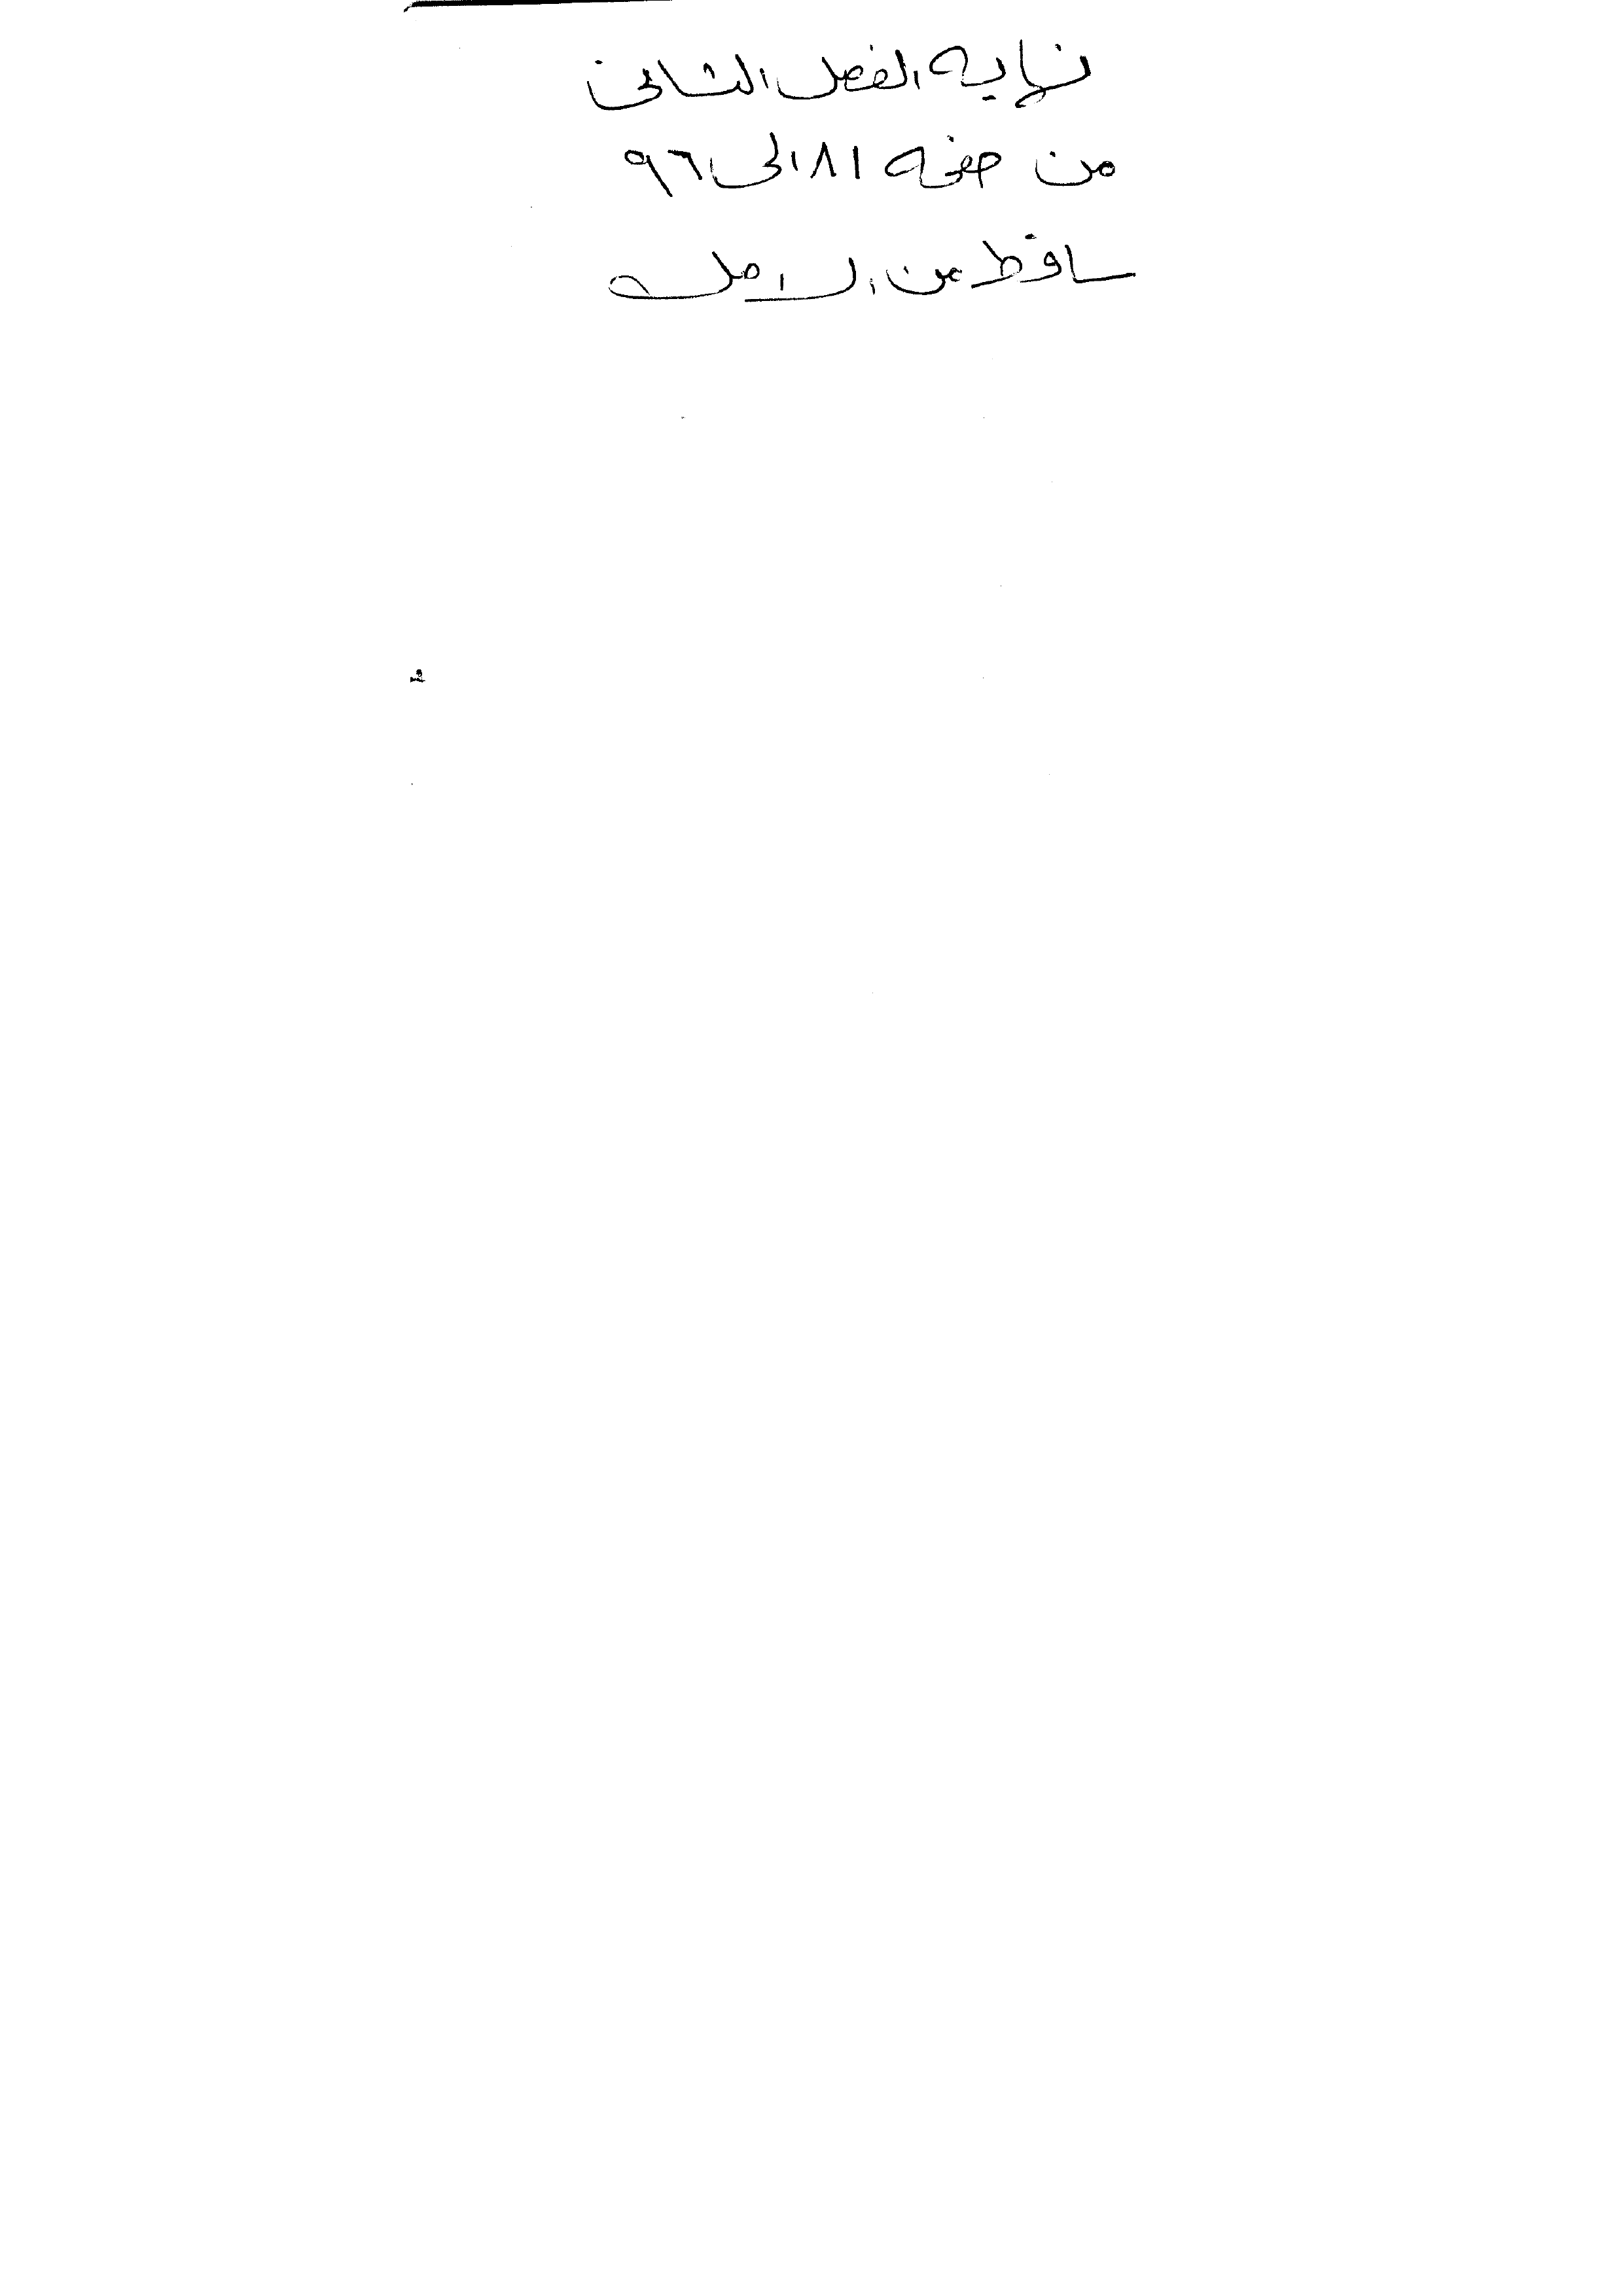 نهاية الفصل الثاني
من صفحة ٨١ الى ٩٦
ساقط من الاصل